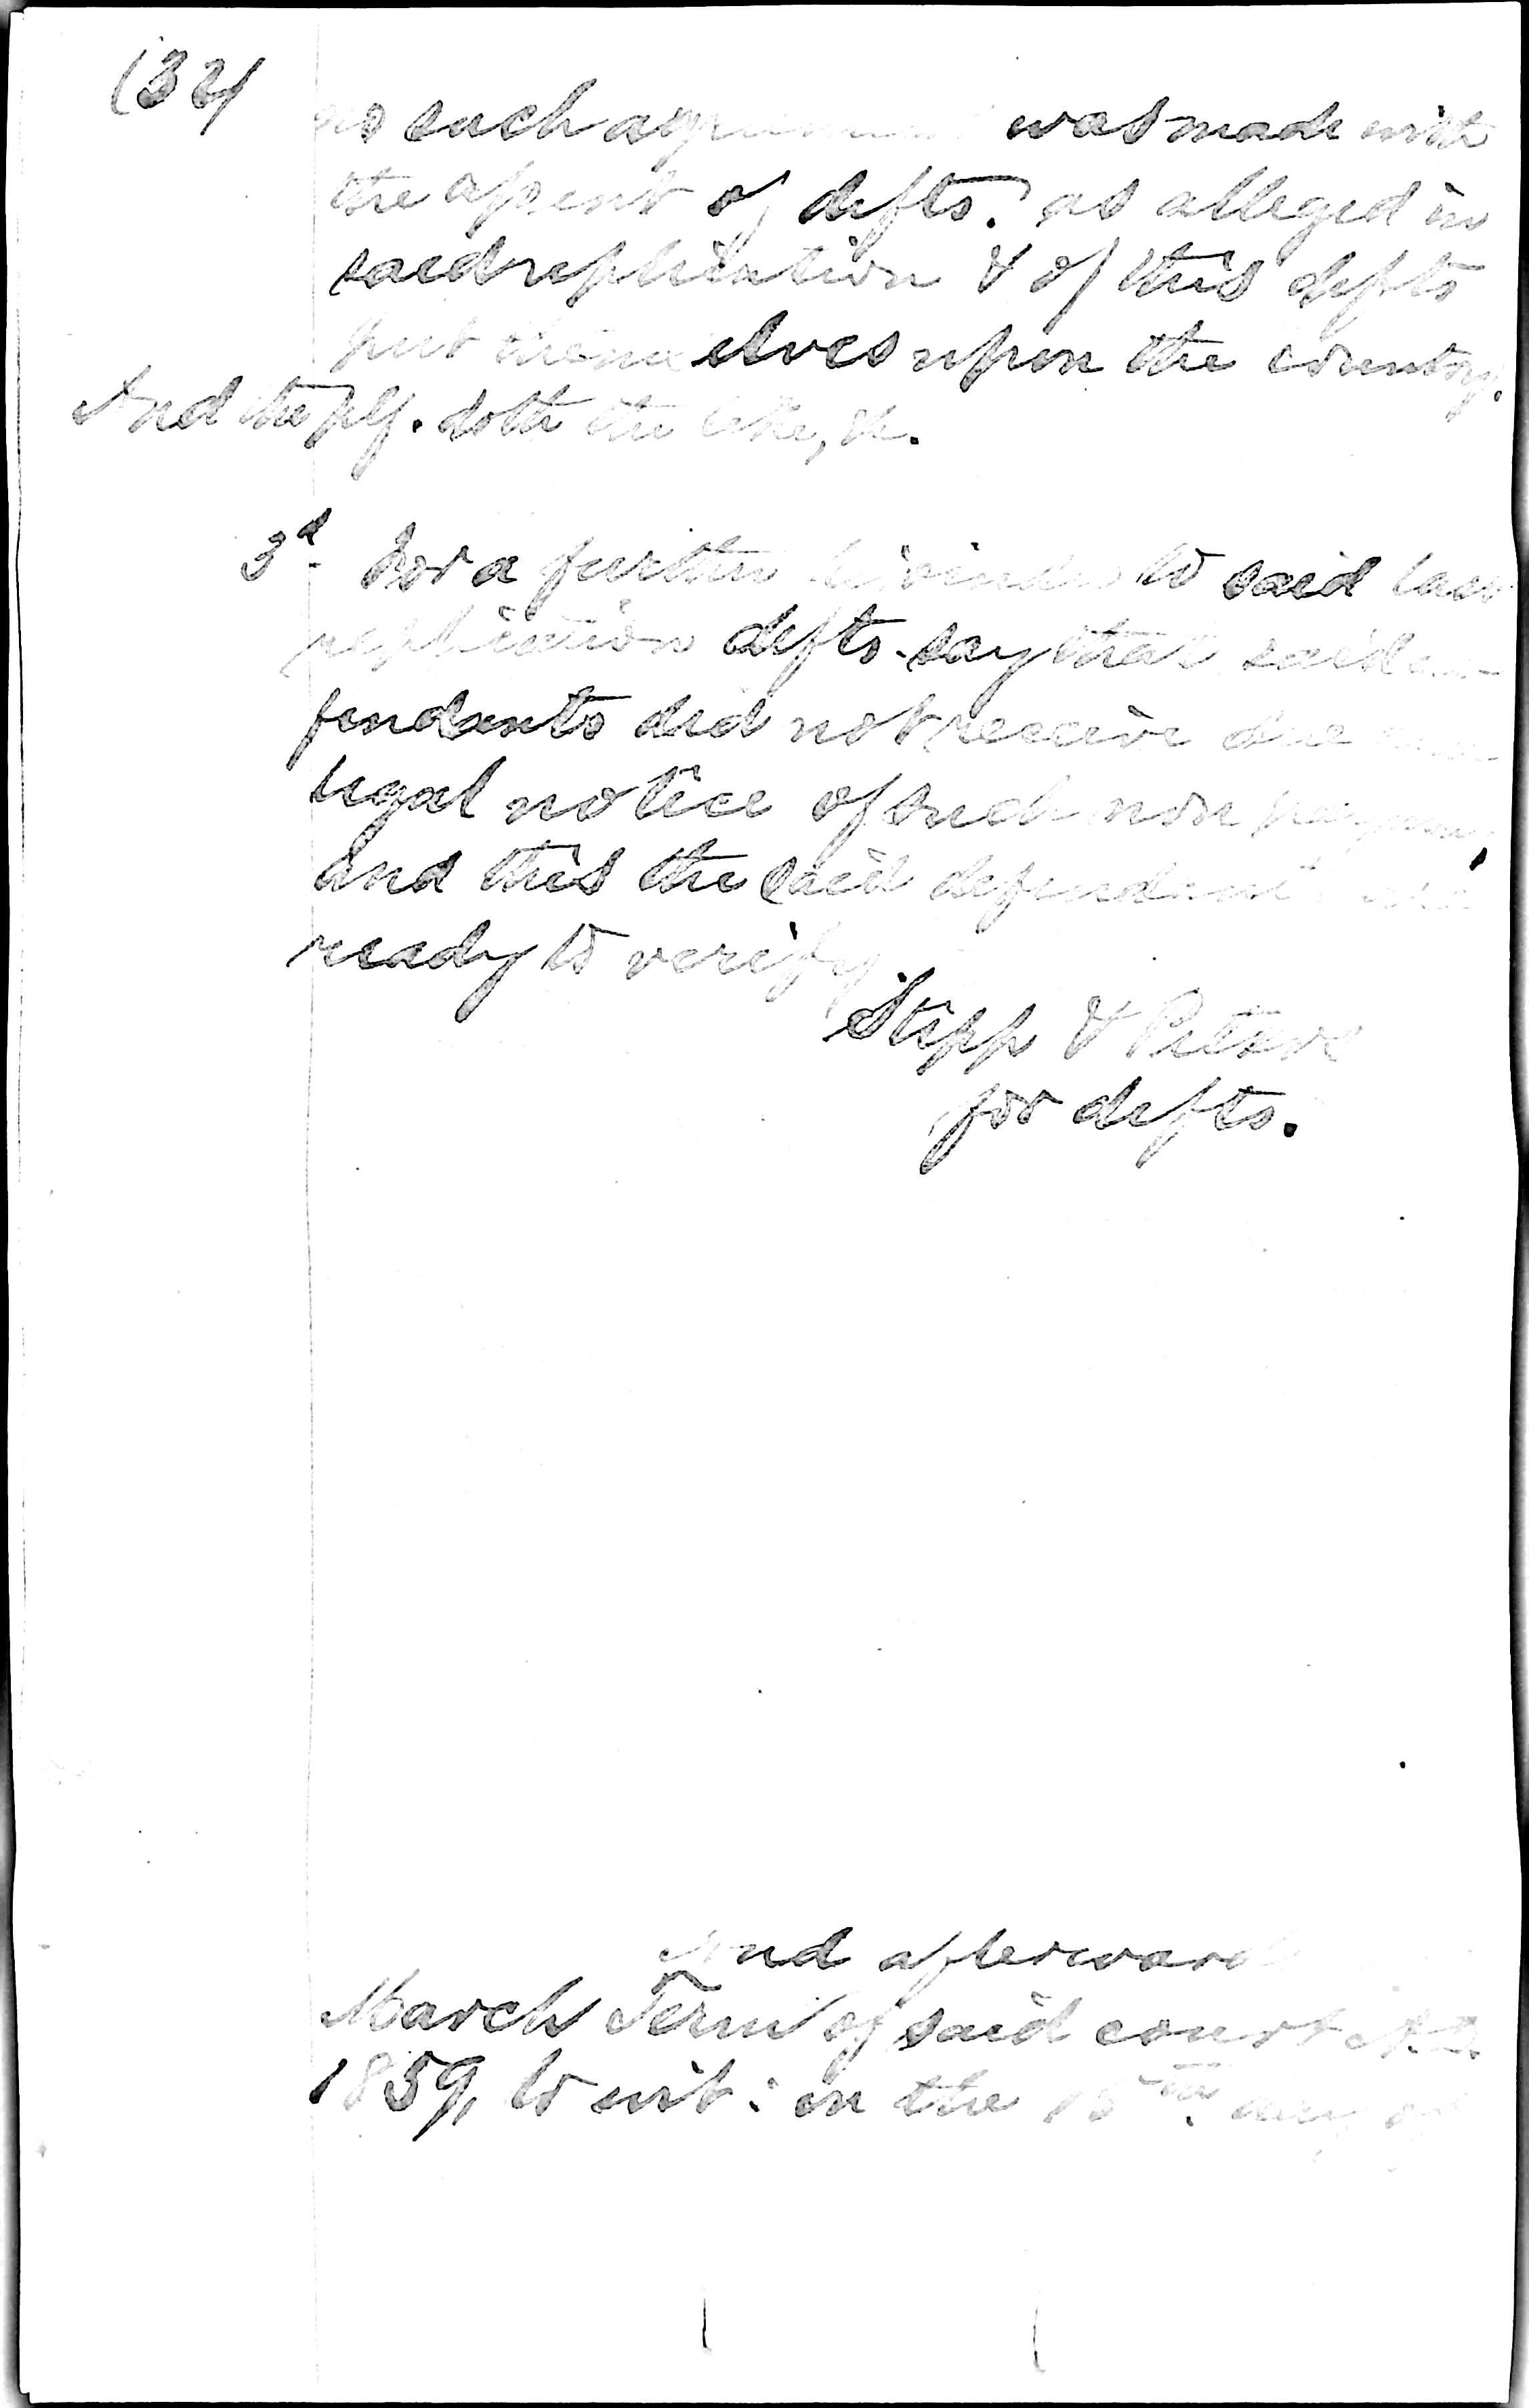 (32)
no such agreement was made with
the assent of defts. as alleged in
said replication & of this defts
put themselves upon the country.
And the plf. doth the like, &c.
3d. For a further to said last
replication defts. say that said
fendants did not receive due
legal notice of such non payment,
and this the said defendants are
ready to verify
Stipp & Peters
for defts.
And afterward
March Term of said court A.D.
1859, to wit: on the 15th. day of